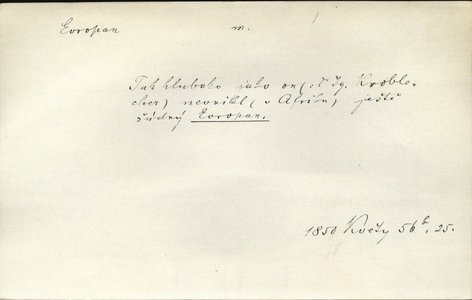 Evropan m.
Tak hluboko jako on (: Ig. Knoble-
cher) nevnikl (v Africe) ještě
žádný Evropan.
1850 Květy 56 b, 25.